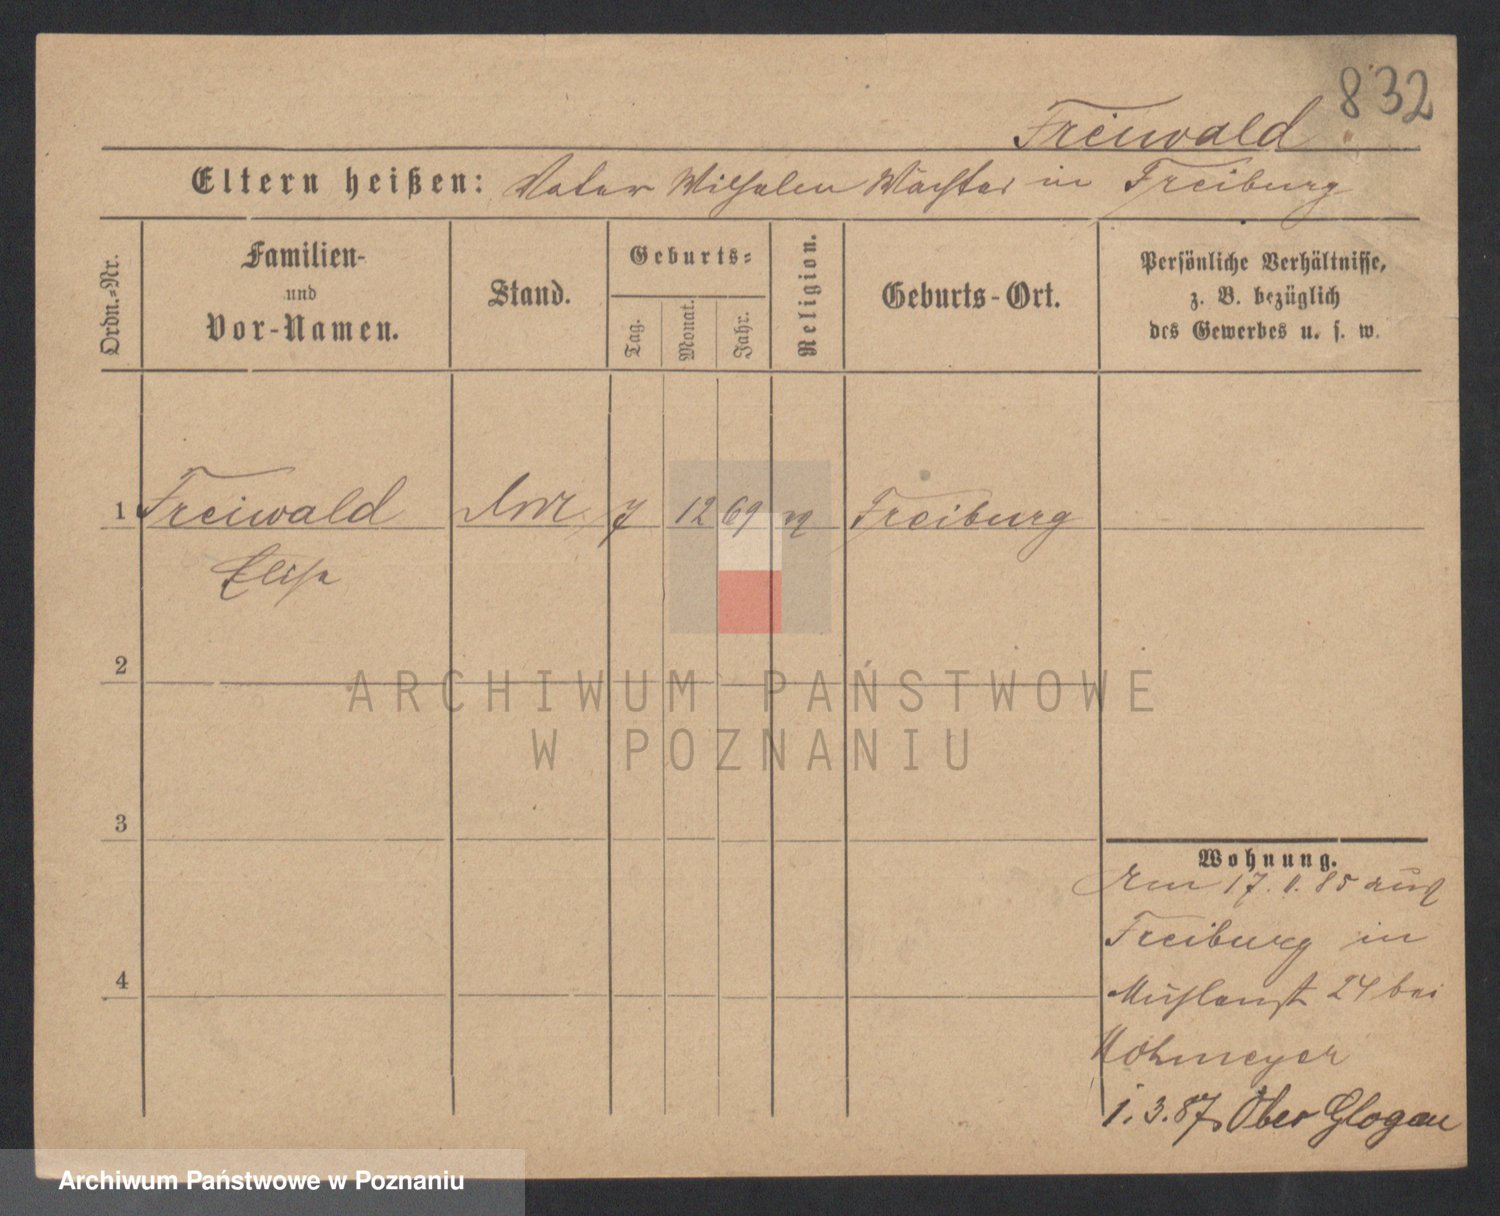 832
Freiwald
Eltern heißen: Vater Wilhelm Wächter in Freiburg
Ordn.-Nr.
Familien-
und
Vor-Namen.
Stand.
Geburts-
Tag.
Monat.
Jahr.
Religion.
Geburts-Ort.
Persönliche Verhältnisse,
z. B. bezüglich
des Gewerbes u. s. w.
1 Freiwald 7 12 69 Freiburg
2
ARCHIWUM PAŃSTWOWE
W POZNANIU
3
4
Wohnung.
17. 85 aus
Freiburg in
Mühlenst 24 bei
Höhmeyer
1.3.87 Ober Glogau
Archiwum Państwowe w Poznaniu